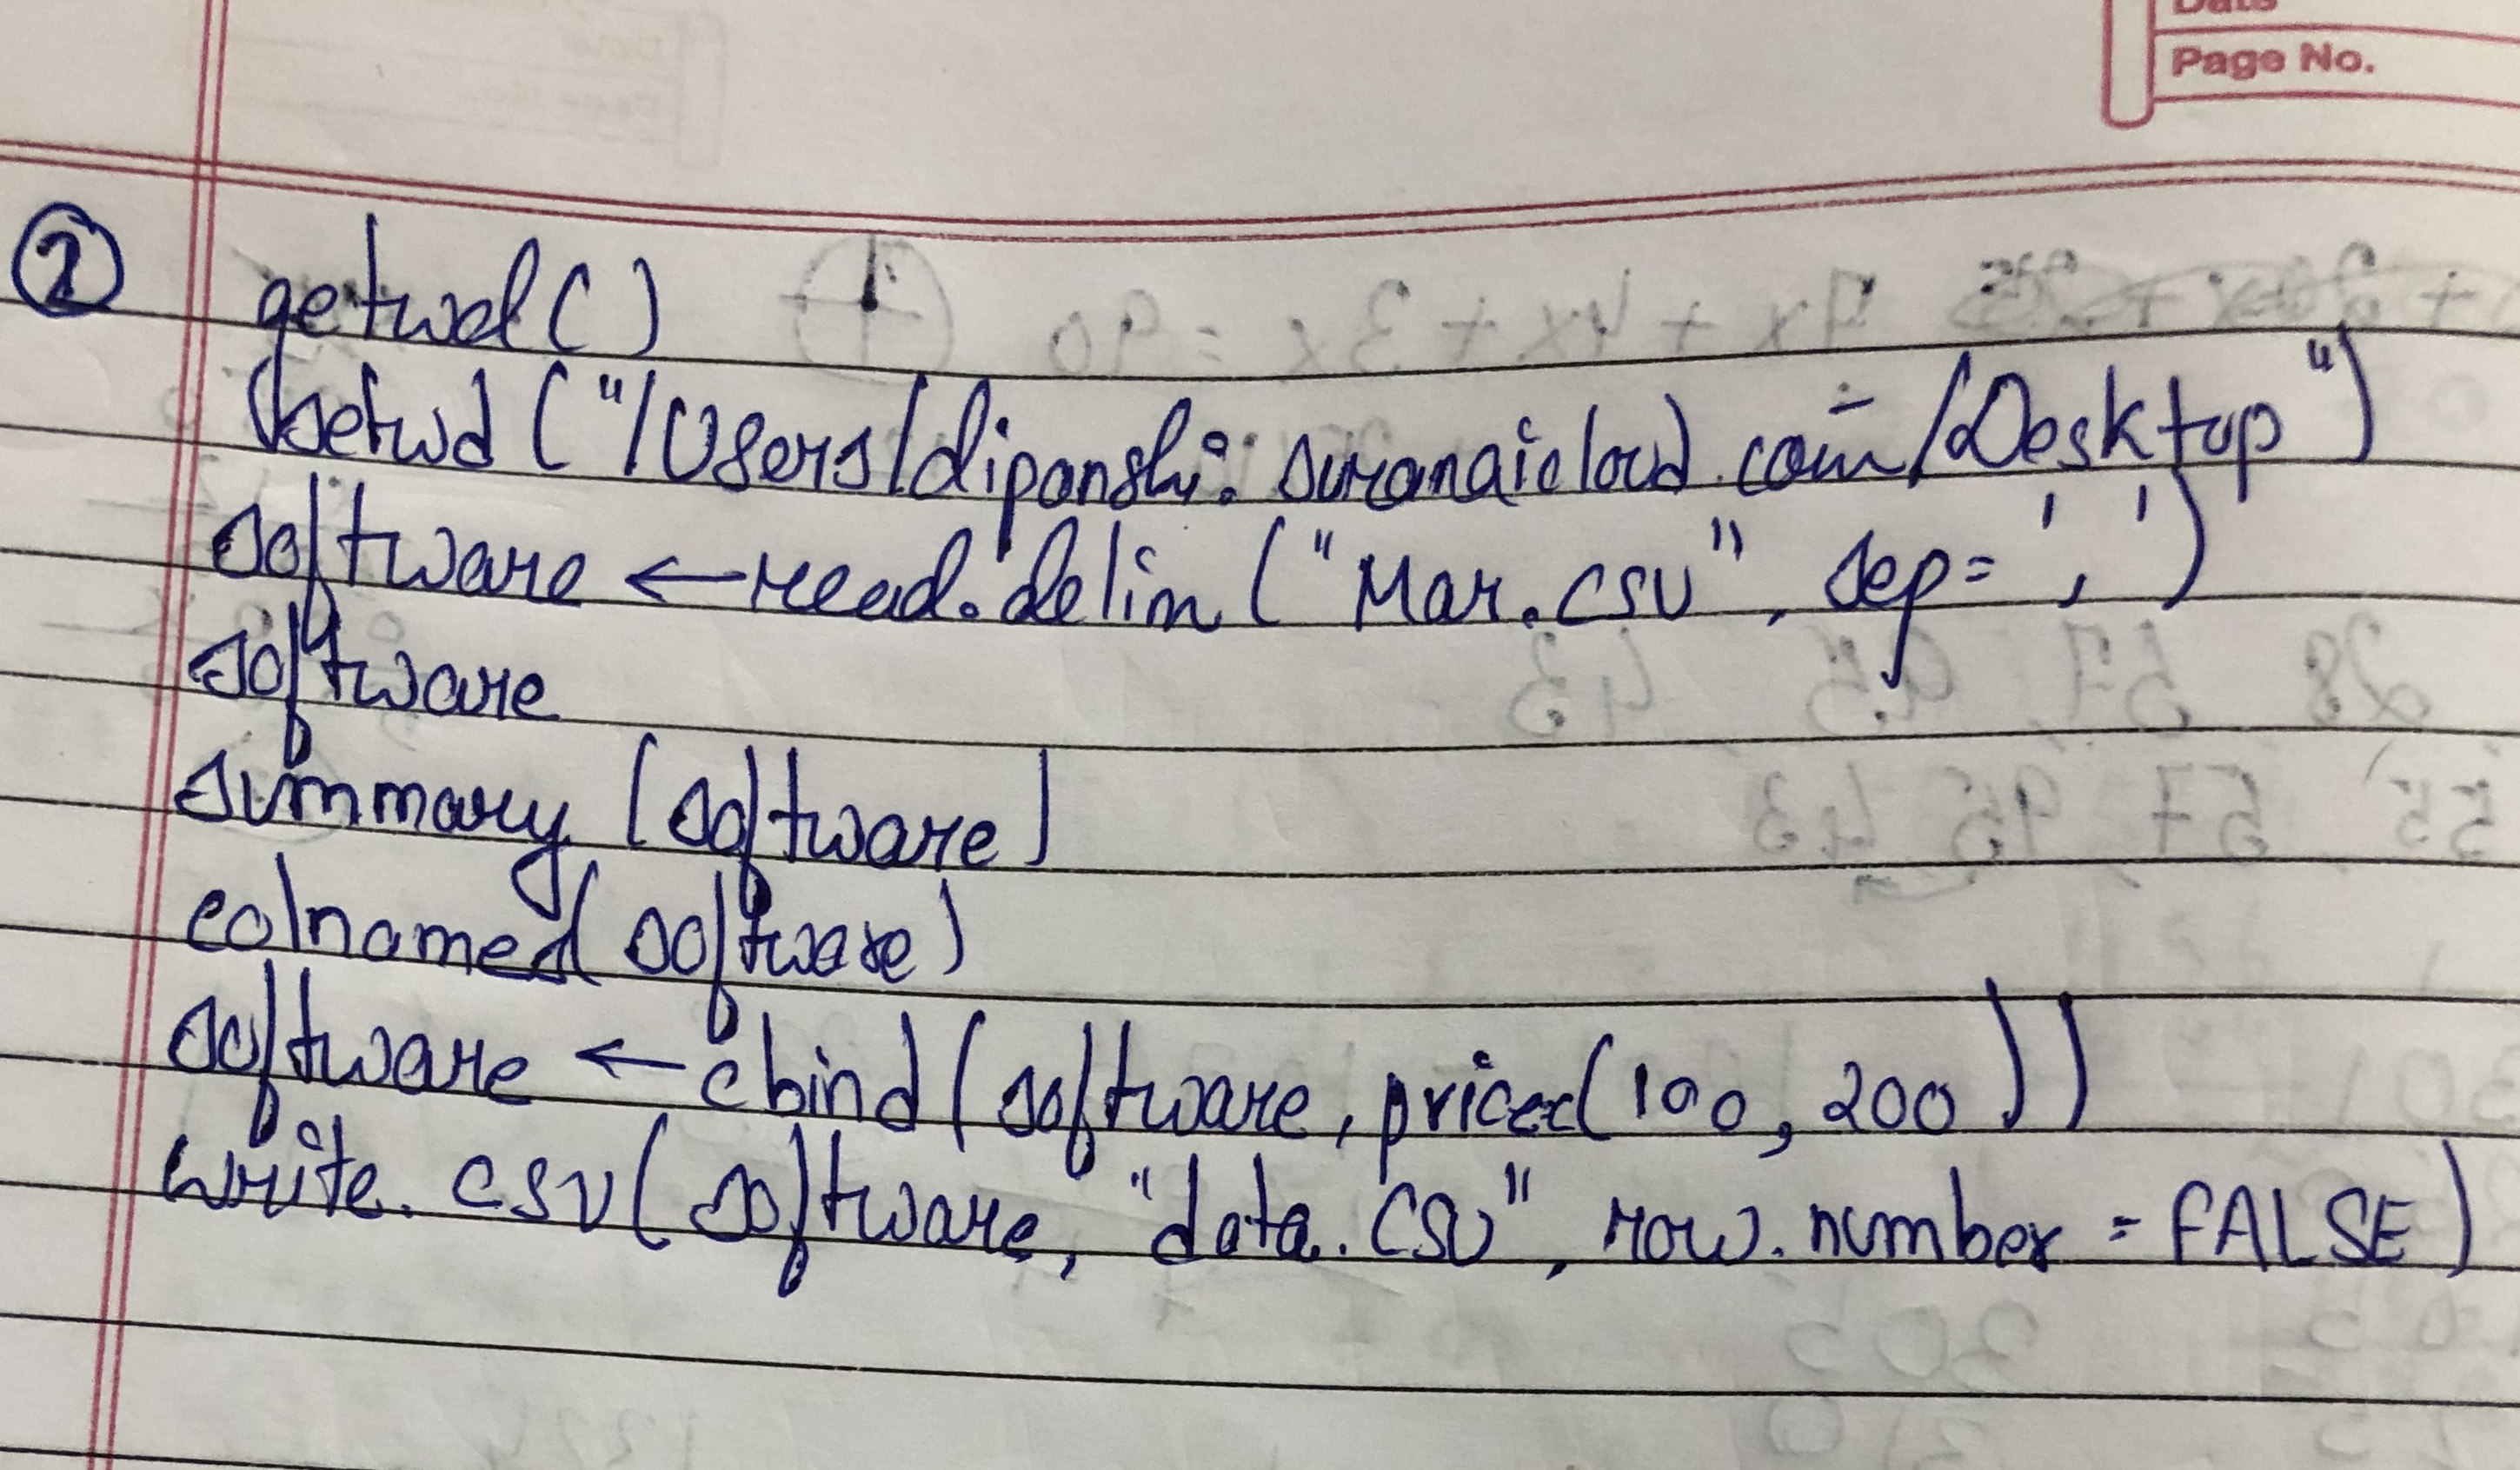 Date
Page No.
② getwd()
setwd ("/Users/dipanshi.suranaicloud.com/Desktop")
software ← read.delim ("Mar.csv", sep=',')
software
summary (software)
colnames(software)
software ← cbind (software, pricec(100, 200))
write.csv(software, "data.csv", row.number = FALSE)